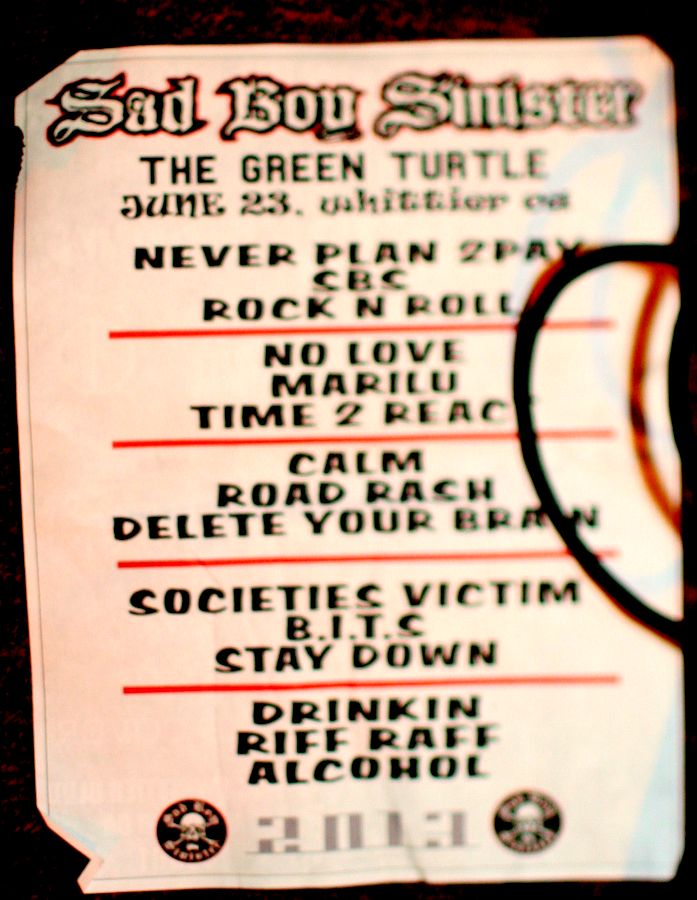 Sad Boy Sinister
THE GREEN TURTLE
JUNE 23. whittier ca
NEVER PLAN 2PAY
SBS
ROCK N ROLL
NO LOVE
MARILU
TIME 2 REACT
CALM
ROAD RASH
DELETE YOUR BRAIN
SOCIETIES VICTIM
B.I.T.S
STAY DOWN
DRINKIN
RIFF RAFF
ALCOHOL
Sad Boy
Sinister
2013
Sad Boy
Sinister